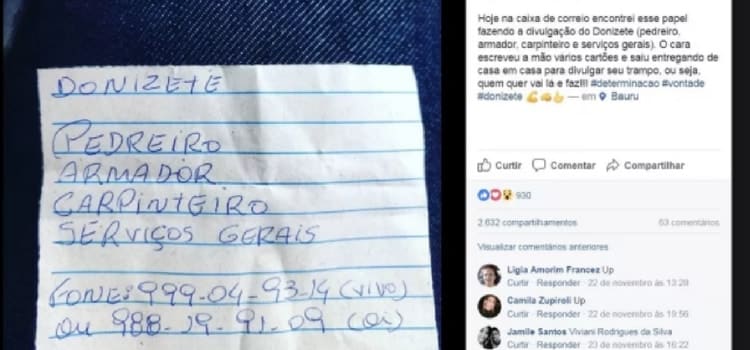 DONIZETE
PEDREIRO
ARMADOR
CARPINTEIRO
SERVIÇOS GERAIS
FONE: 999-04-93-14 (VIVO)
OU 988-19-91-09 (Oi)
Hoje na caixa de correio encontrei esse papel
fazendo a divulgação do Donizete (pedreiro,
armador, carpinteiro e serviços gerais). O cara
escreveu a mão vários cartões e saiu entregando de
casa em casa para divulgar seu trampo, ou seja,
quem quer vai lá e faz!!! #determinacao #vontade
#donizete 💪👊👆 — em Bauru
Curtir Comentar Compartilhar
930
2.632 compartilhamentos 63 comentários
Visualizar comentários anteriores
Ligia Amorim Francez Up
Curtir · Responder · 22 de novembro às 13:28
Camila Zupiroli Up
Curtir · Responder · 22 de novembro às 19:56
Jamile Santos Viviani Rodrigues da Silva
Curtir · Responder · 23 de novembro às 16:22